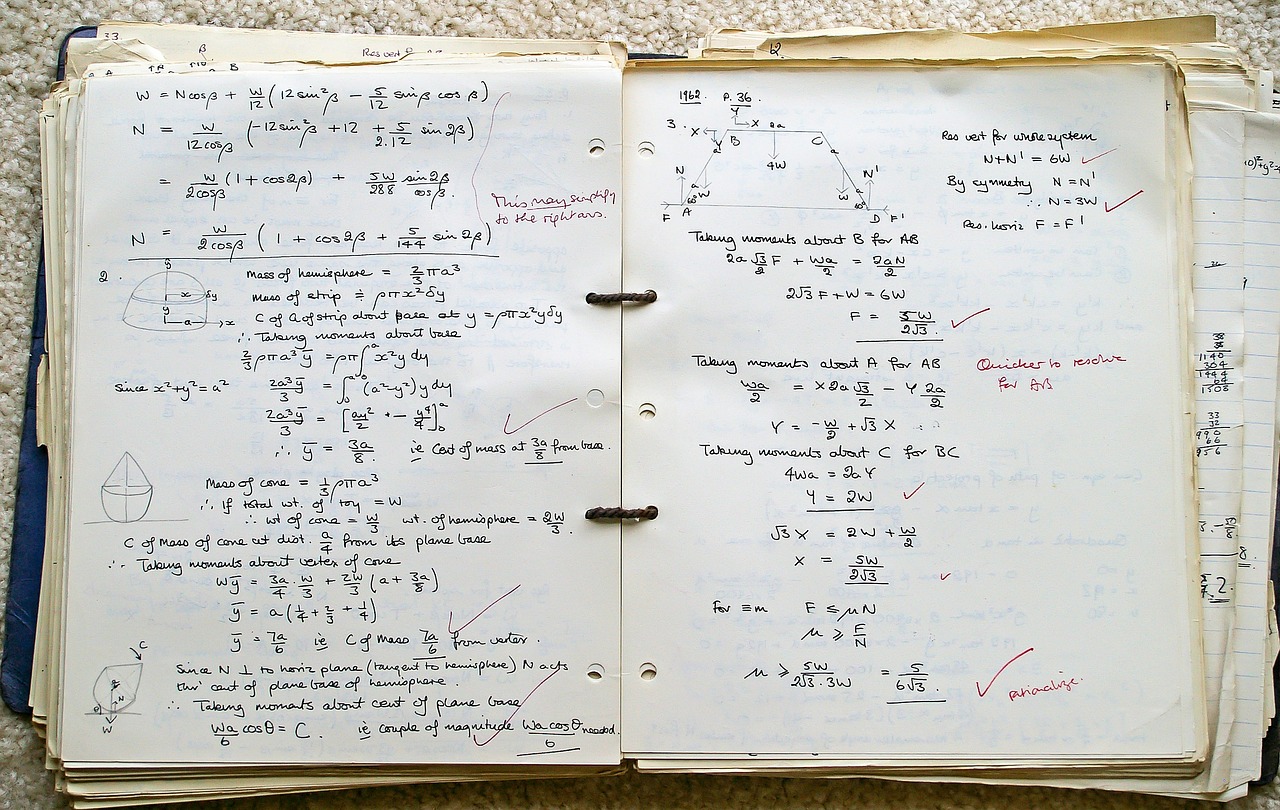 33.
β
Res vert
A B
W = Ncosβ + W/12 (12sin²β − 5/12 sinβ cosβ)
N = W/12cosβ (−12sin²β + 12 + 5/2.12 sin2β)
= W/2cosβ (1 + cos2β) + 5W/288 sin2β/cosβ.
This may simplify
to the right ans.
N = W/2cosβ (1 + cos2β + 5/144 sin2β)
2.
y
x δy
y
a x
Mass of hemisphere = 2/3 πa³
Mass of strip ≑ ρπx²δy
C of G of strip about base at y = ρπx²yδy
∴ Taking moments about base
2/3 ρπa³ȳ = ρπ∫₀ᵃ x²y dy
Since x²+y² = a² 2a³ȳ/3 = ∫₀ᵃ (a²−y²)y dy
2a³ȳ/3 = [ay²/2 − y⁴/4]₀ᵃ
∴ ȳ = 3a/8 ie Cent of mass at 3a/8 from base.
Mass of cone = 1/3 ρπa³
∴ If total wt. of toy = W
∴ wt of cone = W/3 wt. of hemisphere = 2W/3.
C of Mass of cone at dist. a/4 from its plane base
∴ Taking moments about vertex of cone
Wȳ = 3a/4 . W/3 + 2W/3 (a + 3a/8)
ȳ = a(1/4 + 2/3 + 1/4)
ȳ = 7a/6 ie C of Mass 7a/6 from vertex.
C
θ N
W
Since N ⊥ to horiz plane (tangent to hemisphere) N acts
thro' cent of plane base of hemisphere.
∴ Taking moments about cent of plane base
Wa/6 cosθ = C. ie couple of magnitude Wa cosθ/6 needed.
62.
1962. P. 36.
3.
Y
X X 2a
Y B C
a 4W a
N a a N'
W W
60° 60°
F A D F'
Res vert for whole system
N+N' = 6W
By symmetry N = N'
∴ N = 3W
Res. horiz F = F'
Taking moments about B for AB
2a √3/2 F + Wa/2 = 2aN/2
2√3 F + W = 6W
F = 5W/2√3.
Taking moments about A for AB
Quicker to resolve
for AB
Wa/2 = X 2a √3/2 − Y 2a/2
Y = −W/2 + √3 X
Taking moments about C for BC
4Wa = 2aY
Y = 2W
√3 X = 2W + W/2
X = 5W/2√3
For ≡m F ≤ μN
μ ≥ F/N
μ ≥ 5W/2√3.3W = 5/6√3.
rationalize.
38
38
1140
304
1444
64
1508
33
32
990
66
956